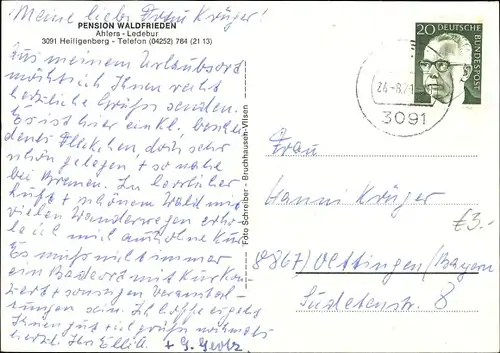 Meine liebe Frau Krüger!
PENSION WALDFRIEDEN
Ahlers - Ledebur
3091 Heiligenberg - Telefon (04252) 784 (21 13)
Aus meinem Urlaubsort
möchte ich Ihnen recht
herzliche Grüße senden.
Es ist hier ein kl. beschei
dents Fleckchen, doch sehr
schön gelegen, + so nahe
bei Bremen. In herrlicher
Luft + schönem Wald mit
vielen Wanderwegen erho
le ich mich auch ohne Kur
Es muß nicht immer
ein Badeort mit Kurkon
zert + sonstigen Veranstal-
tungen sein. Ich hoffe es geht
Ihnen gut + ich grüße nochmals
herzl. Ihre Elli A. + G.
Foto Schreiber - Bruchhausen-Vilsen
20 DEUTSCHE BUNDESPOST
3091
Frau
Hanni Krüger
€3.-
8867) Oettingen/Bayern
Sudetenstr. 8